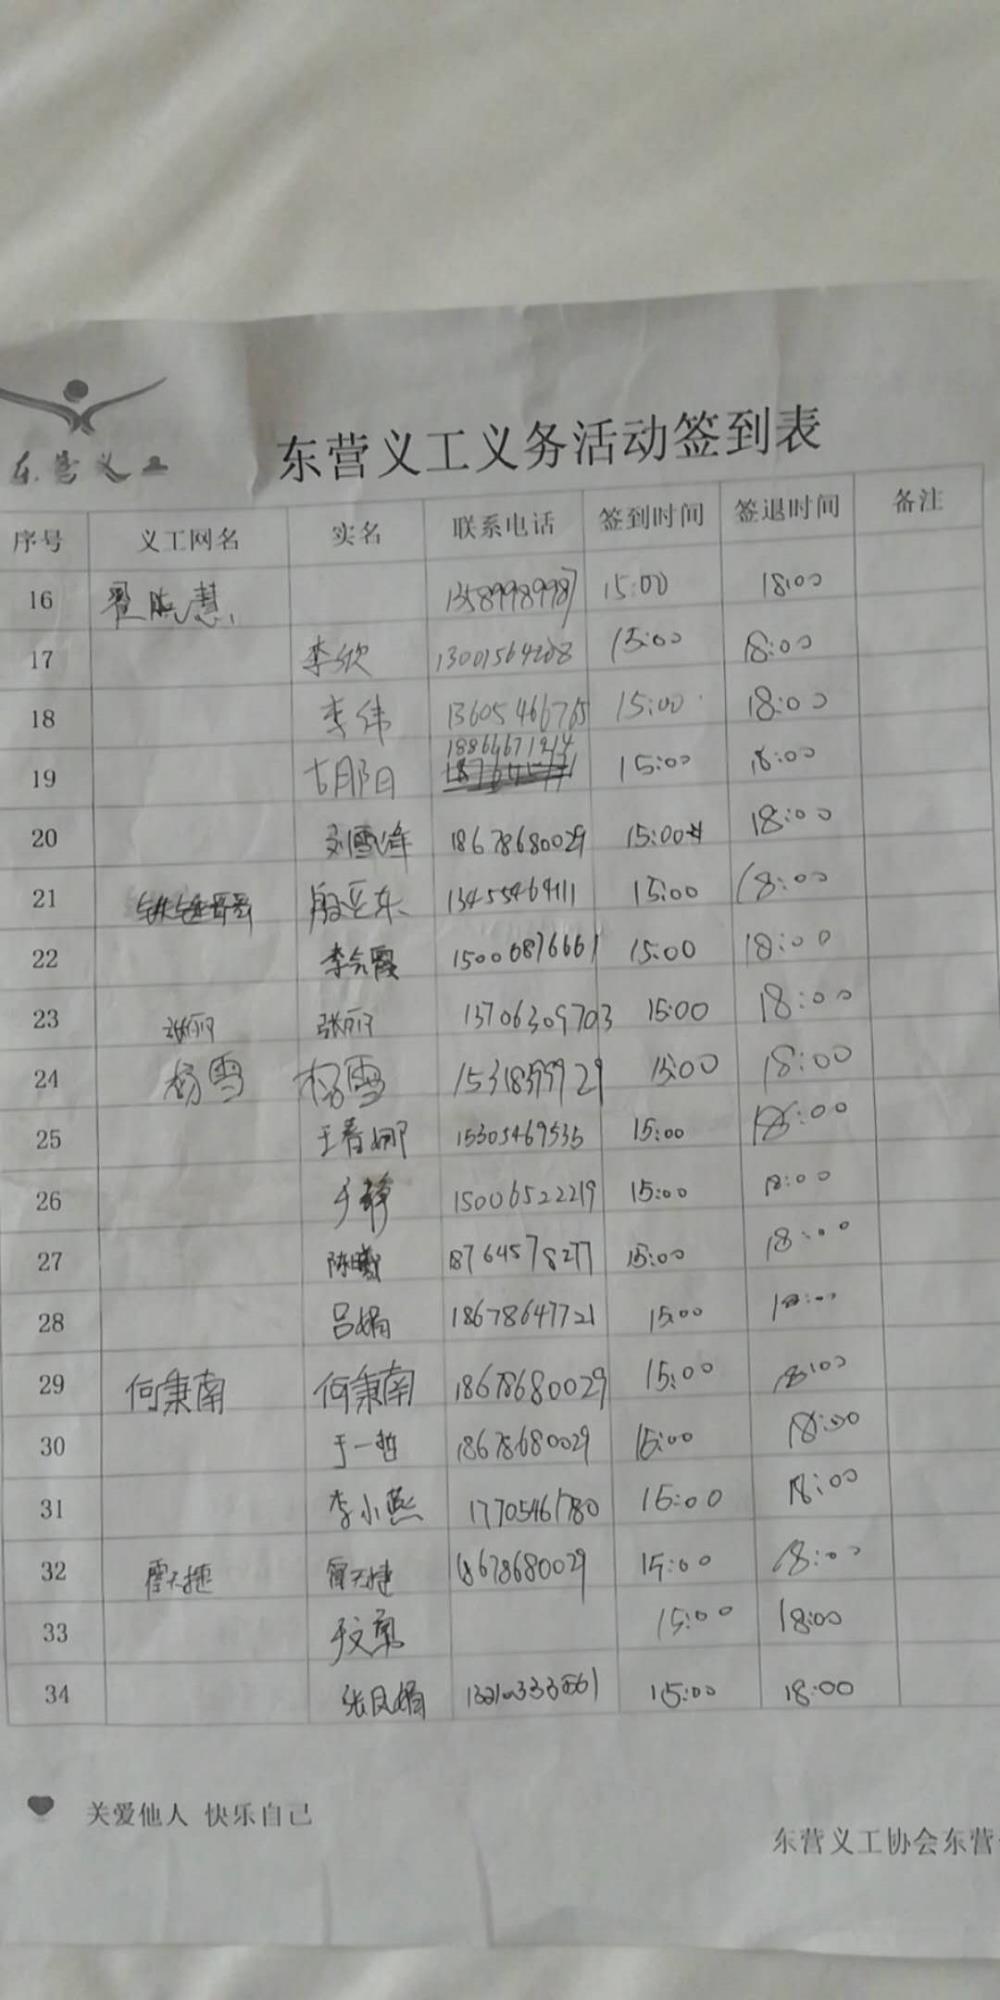 东营义工
东营义工义务活动签到表
序号 义工网名 实名 联系电话 签到时间 签退时间 备注
16 翟晓慧 13589989987 15:00 18:00
17 李欣 13001564208 15:00 18:00
18 李伟 13605466765 15:00 18:00
19 胡阳 18864671214 15:00 18:00
20 刘雪峰 18678680029 15:00 18:00
21 殷亚东 13455464111 15:00 18:00
22 李令霞 15006876661 15:00 18:00
23 张丽 张丽 13706309703 15:00 18:00
24 杨雪 杨雪 15:00 18:00
25 王春娜 15305469535 15:00 18:00
26 于静 15006522219 15:00 18:00
27 陈曦 18764578277 15:00 18:00
28 吕娟 18678647721 15:00 18:00
29 何秉南 何秉南 18678680029 15:00 18:00
30 于一哲 18678680029 15:00 18:00
31 李小燕 17705461780 15:00 18:00
32 霍天捷 霍天捷 18678680029 15:00 18:00
33 15:00 18:00
34 张凤娟 15:00 18:00
关爱他人 快乐自己
东营义工协会东营